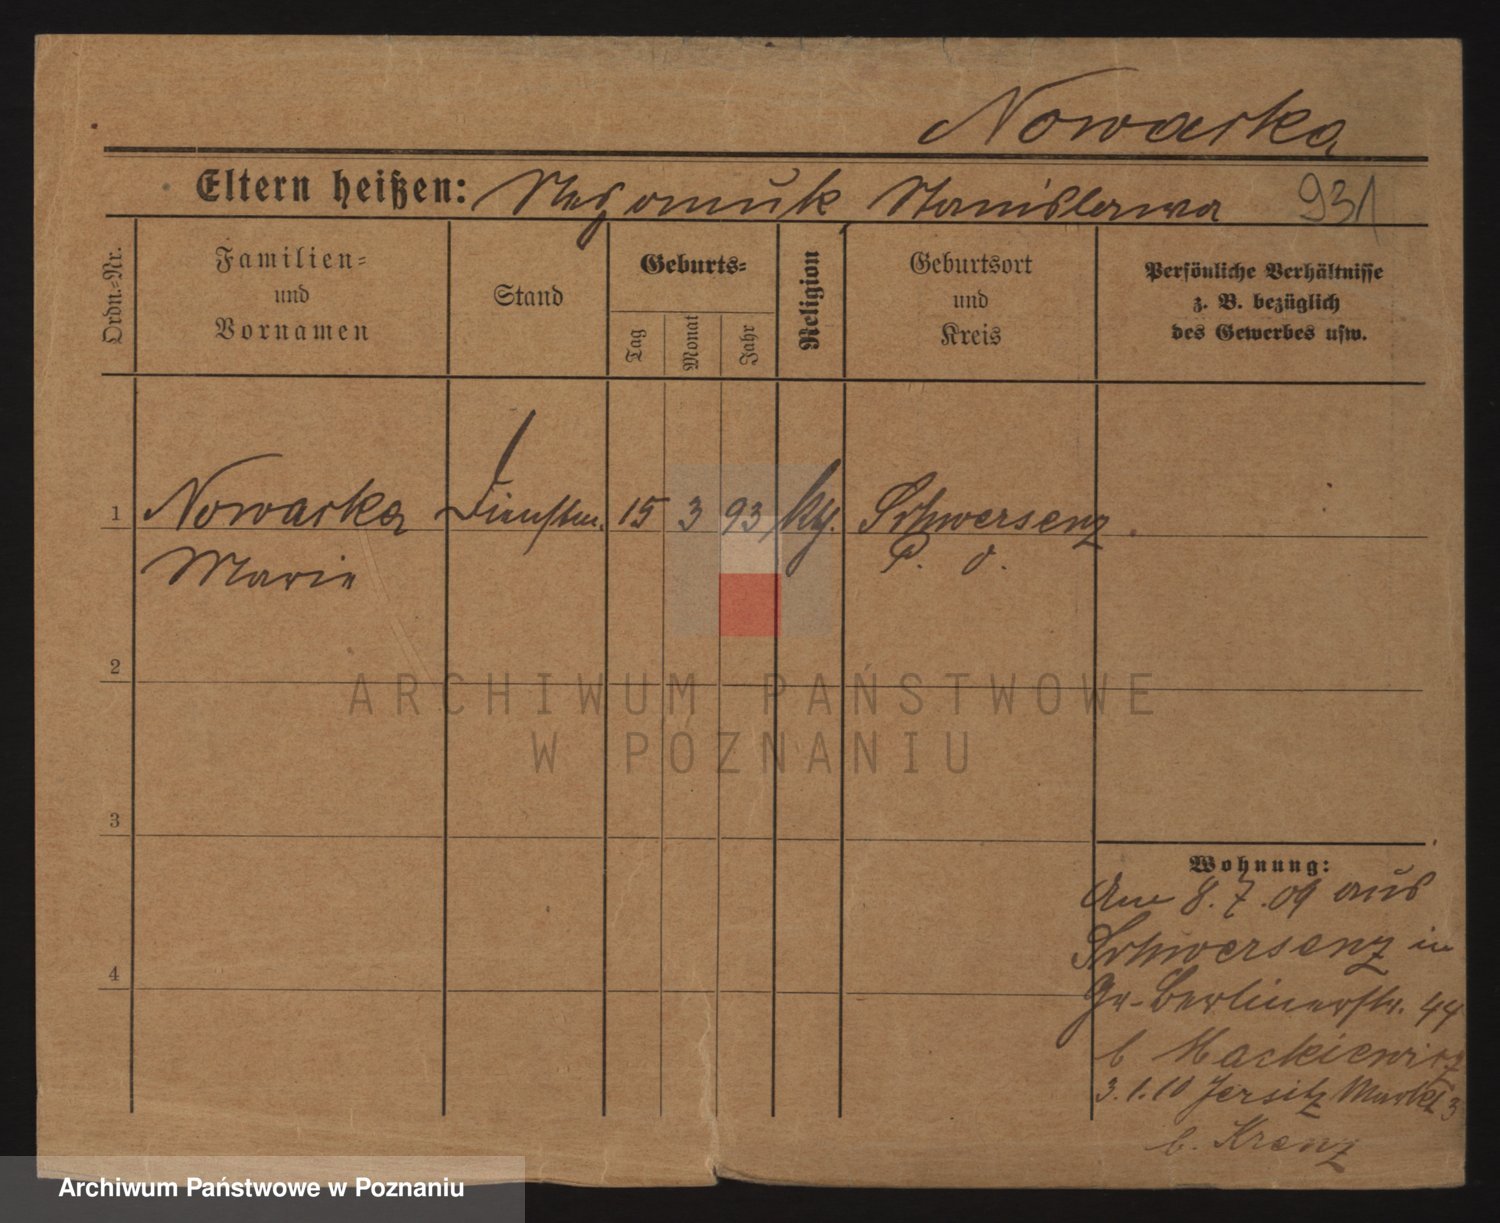 Nowacka
Eltern heißen: Nepomuk, Stanislawa 931
Ordn.-Nr.
Familien-
und
Vornamen
Stand
Geburts-
Tag
Monat
Jahr
Religion
Geburtsort
und
Kreis
Persönliche Verhältnisse
z. B. bezüglich
des Gewerbes usw.
1 Nowacka Dienstm. 15 3 93 kg. Schwersenz
Marie P. O.
2
3
4
Wohnung:
Am 8.7.09 aus
Schwersenz in
Gr. Berlinerstr. 44
b Mackiewicz
3.1.10 Jersitz Markt 3
b. Krenz
ARCHIWUM PAŃSTWOWE
W POZNANIU
Archiwum Państwowe w Poznaniu